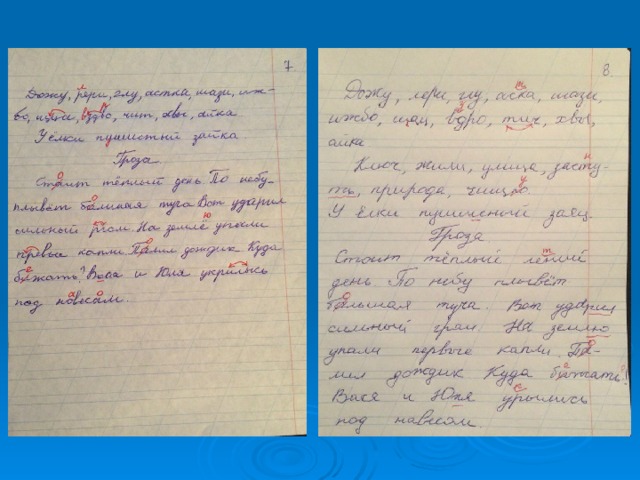 7
Дожу, рери, глу, астка, шази, иж-
во, чит, хвы, айка
У ёлки пушистый зайка
Гроза
Стоит тёплый день По небу
плывёт балшая туча Вот ударил
сильный гром На землё упали
первые капли. Палил дождик Куда
бижать? Вася и Юля укрылись
под навесом.
8.
Дожу, лери, глу, аска, шази,
ижбо, щац, вдро, тич, хвы,
айка
Ключ, жили, улица, засту-
ть, природа, чищо
У ёлки пушисный заяц.
Гроза
Стоит тёплый лений
день По небу плывёт
балшая туча. Вот ударил
сильный грам На землю
упали первые капли. Па-
лил дождик Куда бижать!
Вася и Юля урылись
под навесом.